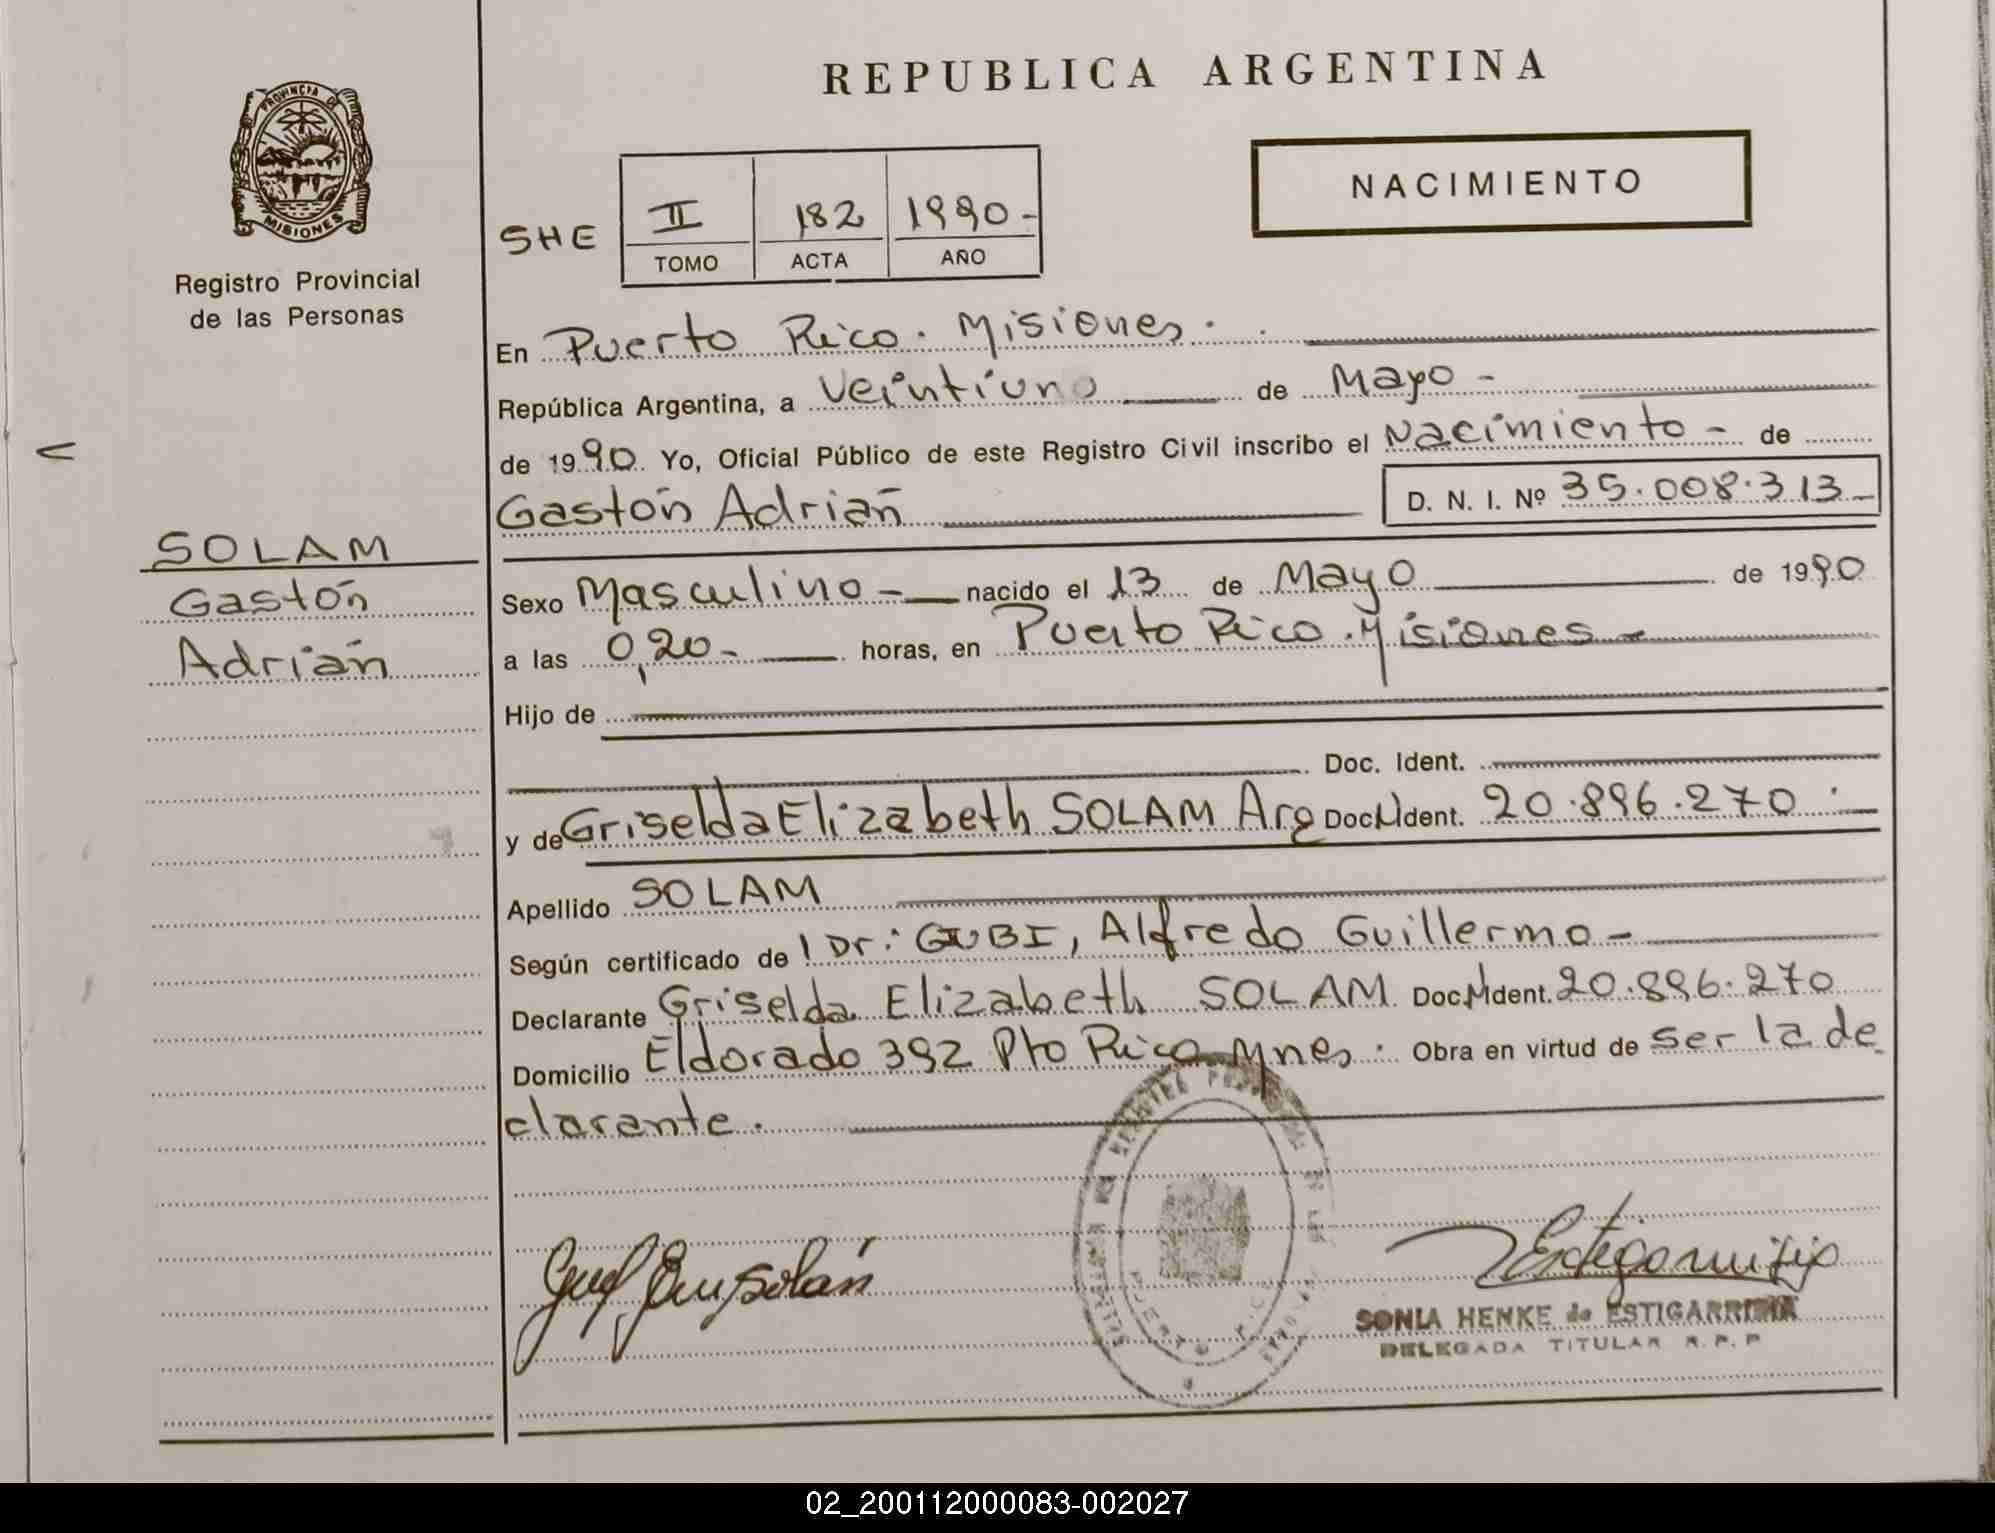 REPUBLICA ARGENTINA
PROVINCIA DE
MISIONES
Registro Provincial
de las Personas
NACIMIENTO
SHE
II 182 1990-
TOMO ACTA AÑO
En Puerto Rico. Misiones.
República Argentina, a Veintiuno de Mayo -
de 1990. Yo, Oficial Público de este Registro Civil inscribo el Nacimiento - de
Gastón Adrián D. N. I. Nº 35.008.313-
SOLAM
Gastón
Adrián
Sexo Masculino - nacido el 13 de Mayo de 1990
a las 0,20- horas, en Puerto Rico. Misiones -
Hijo de
Doc. Ident.
y de Griselda Elizabeth SOLAM Arg Doc. Ident. 20.896.270
Apellido SOLAM
Según certificado de l Dr: GUBI, Alfredo Guillermo -
Declarante Griselda Elizabeth SOLAM Doc. Ident. 20.896.270
Domicilio Eldorado 392 Pto Rico Mnes. Obra en virtud de ser la de
clarante.
SONIA HENKE de ESTIGARRIBIA
DELEGADA TITULAR R. P. P
02_200112000083-002027